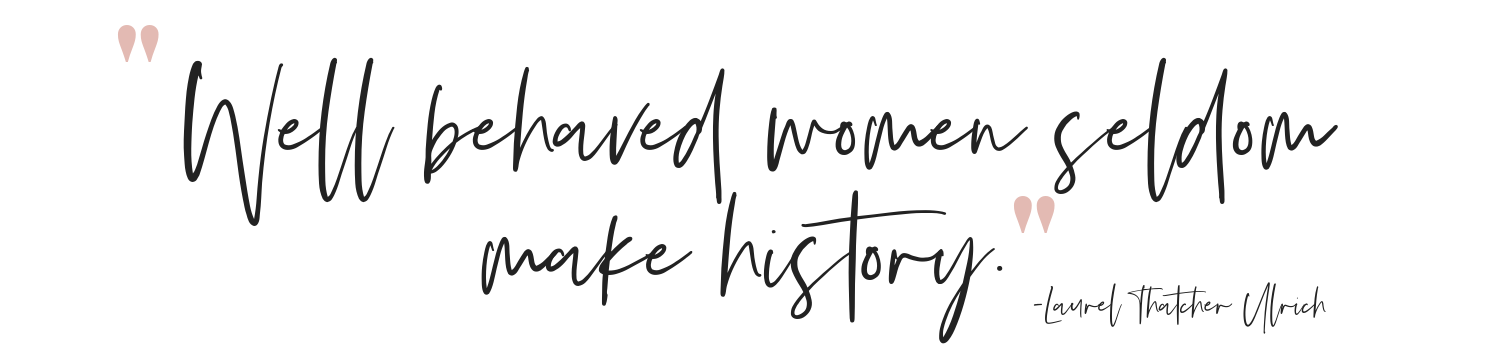 "Well behaved women seldom
make history."
-Laurel Thatcher Ulrich